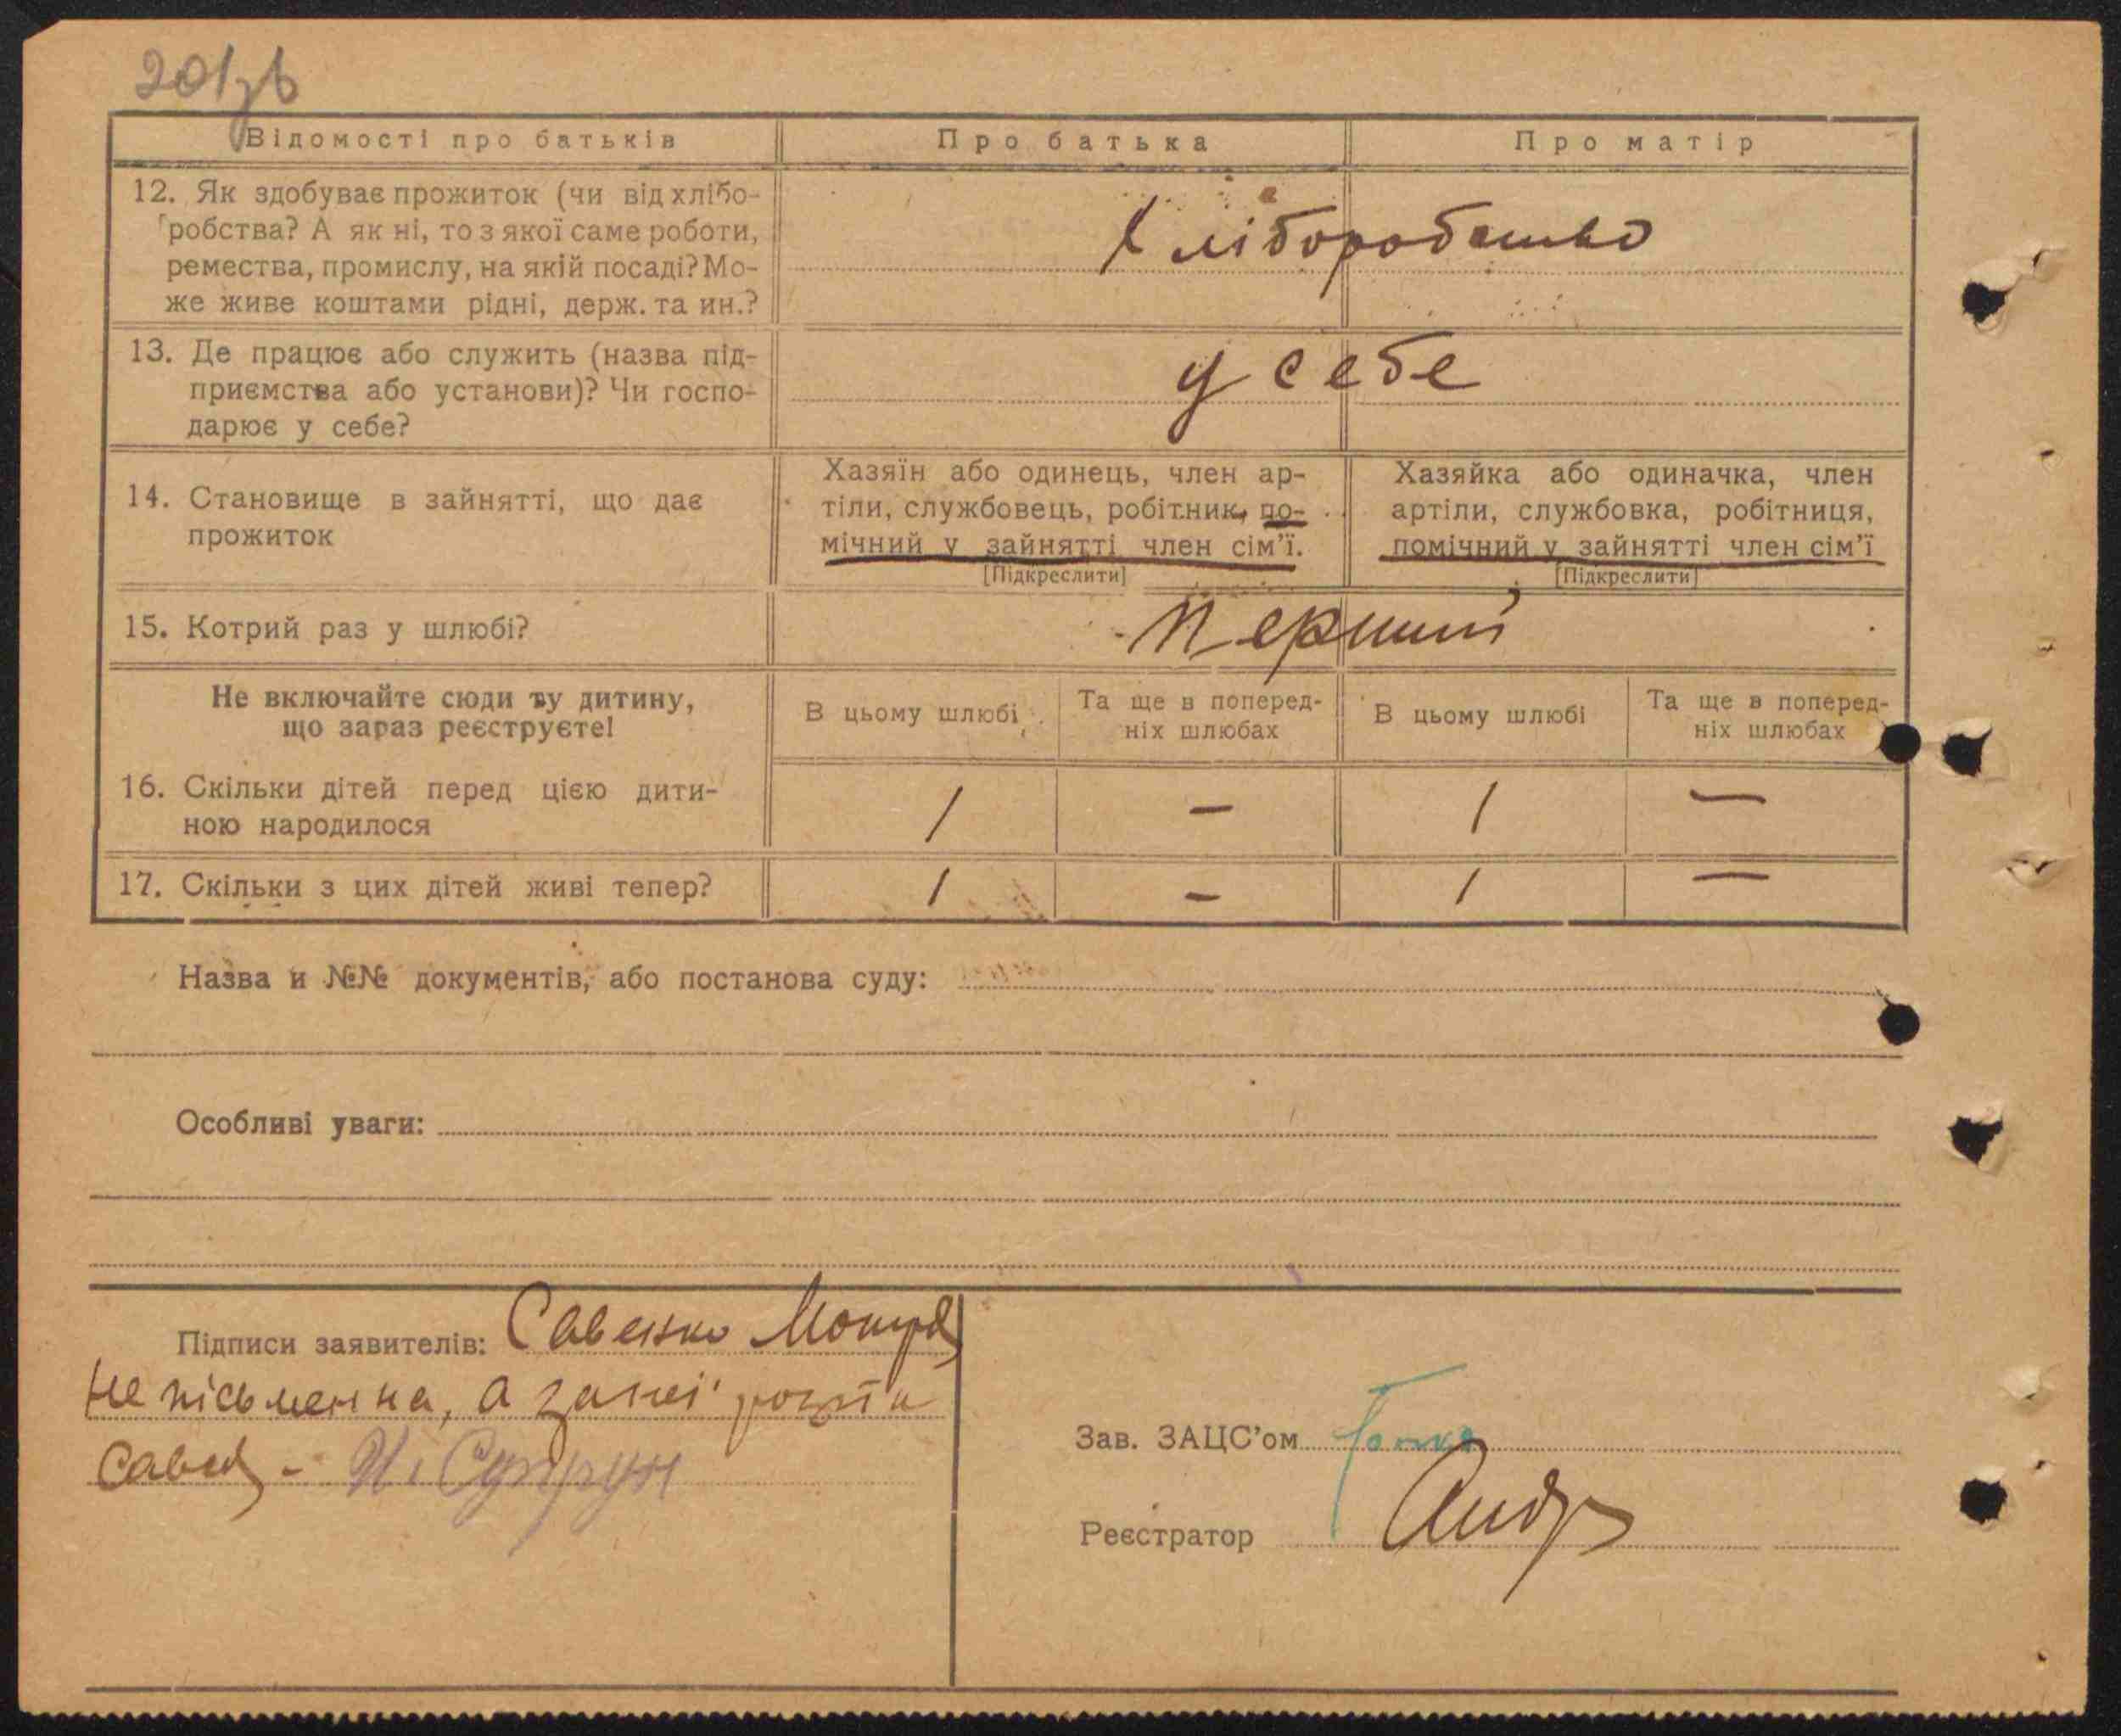 201зв
Відомості про батьків
Про батька
Про матір
12. Як здобуває прожиток (чи від хлібо-
робства? А як ні, то з якої саме роботи,
ремества, промислу, на якій посаді? Мо-
же живе коштами рідні, держ. та ин.?
Хліборобство
13. Де працює або служить (назва під-
приємства або установи)? Чи госпо-
дарює у себе?
у себе
14. Становище в зайнятті, що дає
прожиток
Хазяїн або одинець, член ар-
тіли, службовець, робітник, по-
мічний у зайнятті член сім'ї.
[Підкреслити]
Хазяйка або одиначка, член
артіли, службовка, робітниця,
помічний у зайнятті член сім'ї
[Підкреслити]
15. Котрий раз у шлюбі?
перший
Не включайте сюди ту дитину,
що зараз реєструєте!
В цьому шлюбі
Та ще в поперед-
ніх шлюбах
В цьому шлюбі
Та ще в поперед-
ніх шлюбах
16. Скільки дітей перед цією дити-
ною народилося
1 — 1 —
17. Скільки з цих дітей живі тепер?
1 — 1 —
Назва и №№ документів, або постанова суду:
Особливі уваги:
Підписи заявителів: Савенко Мокря
не письменна, а за неї
И. Супрун
Зав. ЗАЦС'ом
Реєстратор